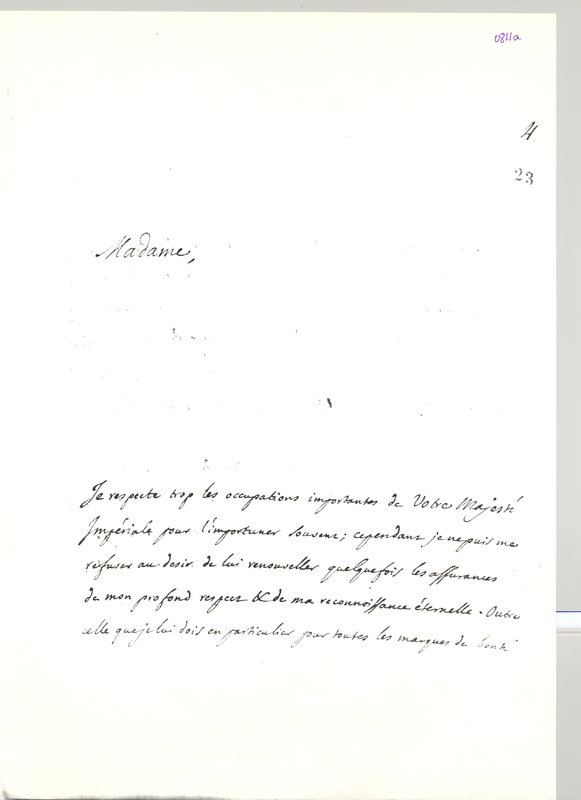 0811a
4.
23
Madame,
Je respecte trop les occupations importantes de Votre Majesté
Impériale pour l'importuner souvent; cependant je ne puis me
refuser au desir de lui renouveller quelquefois les assurances
de mon profond respect & de ma reconnoissance éternelle. Outre
celle que je lui dois en particulier pour toutes les marques de bonté